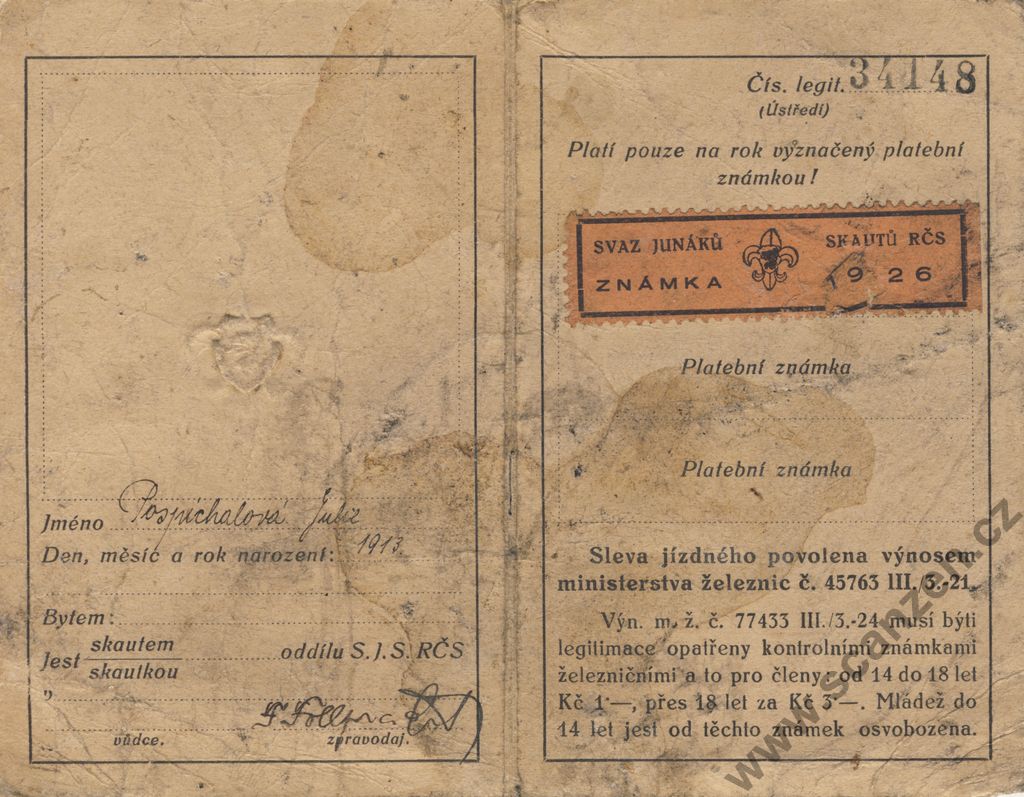 Jméno Pospíchalová Julie
Den, měsíc a rok narození: 1913
Bytem:
Jest skautem
skautkou
oddílu S. J. S. RČS
"
vůdce. zpravodaj.
Čís. legit. 34148
(Ústředí)
Platí pouze na rok vyznačený platební
známkou!
SVAZ JUNÁKŮ SKAUTŮ RČS
ZNÁMKA 1926
Platební známka
Platební známka
Sleva jízdného povolena výnosem
ministerstva železnic č. 45763 III./3.-21.
Výn. m. ž. č. 77433 III./3.-24 musí býti
legitimace opatřeny kontrolními známkami
železničními a to pro členy: od 14 do 18 let
Kč 1·—, přes 18 let za Kč 3·—. Mládež do
14 let jest od těchto známek osvobozena.
www.scanzen.cz